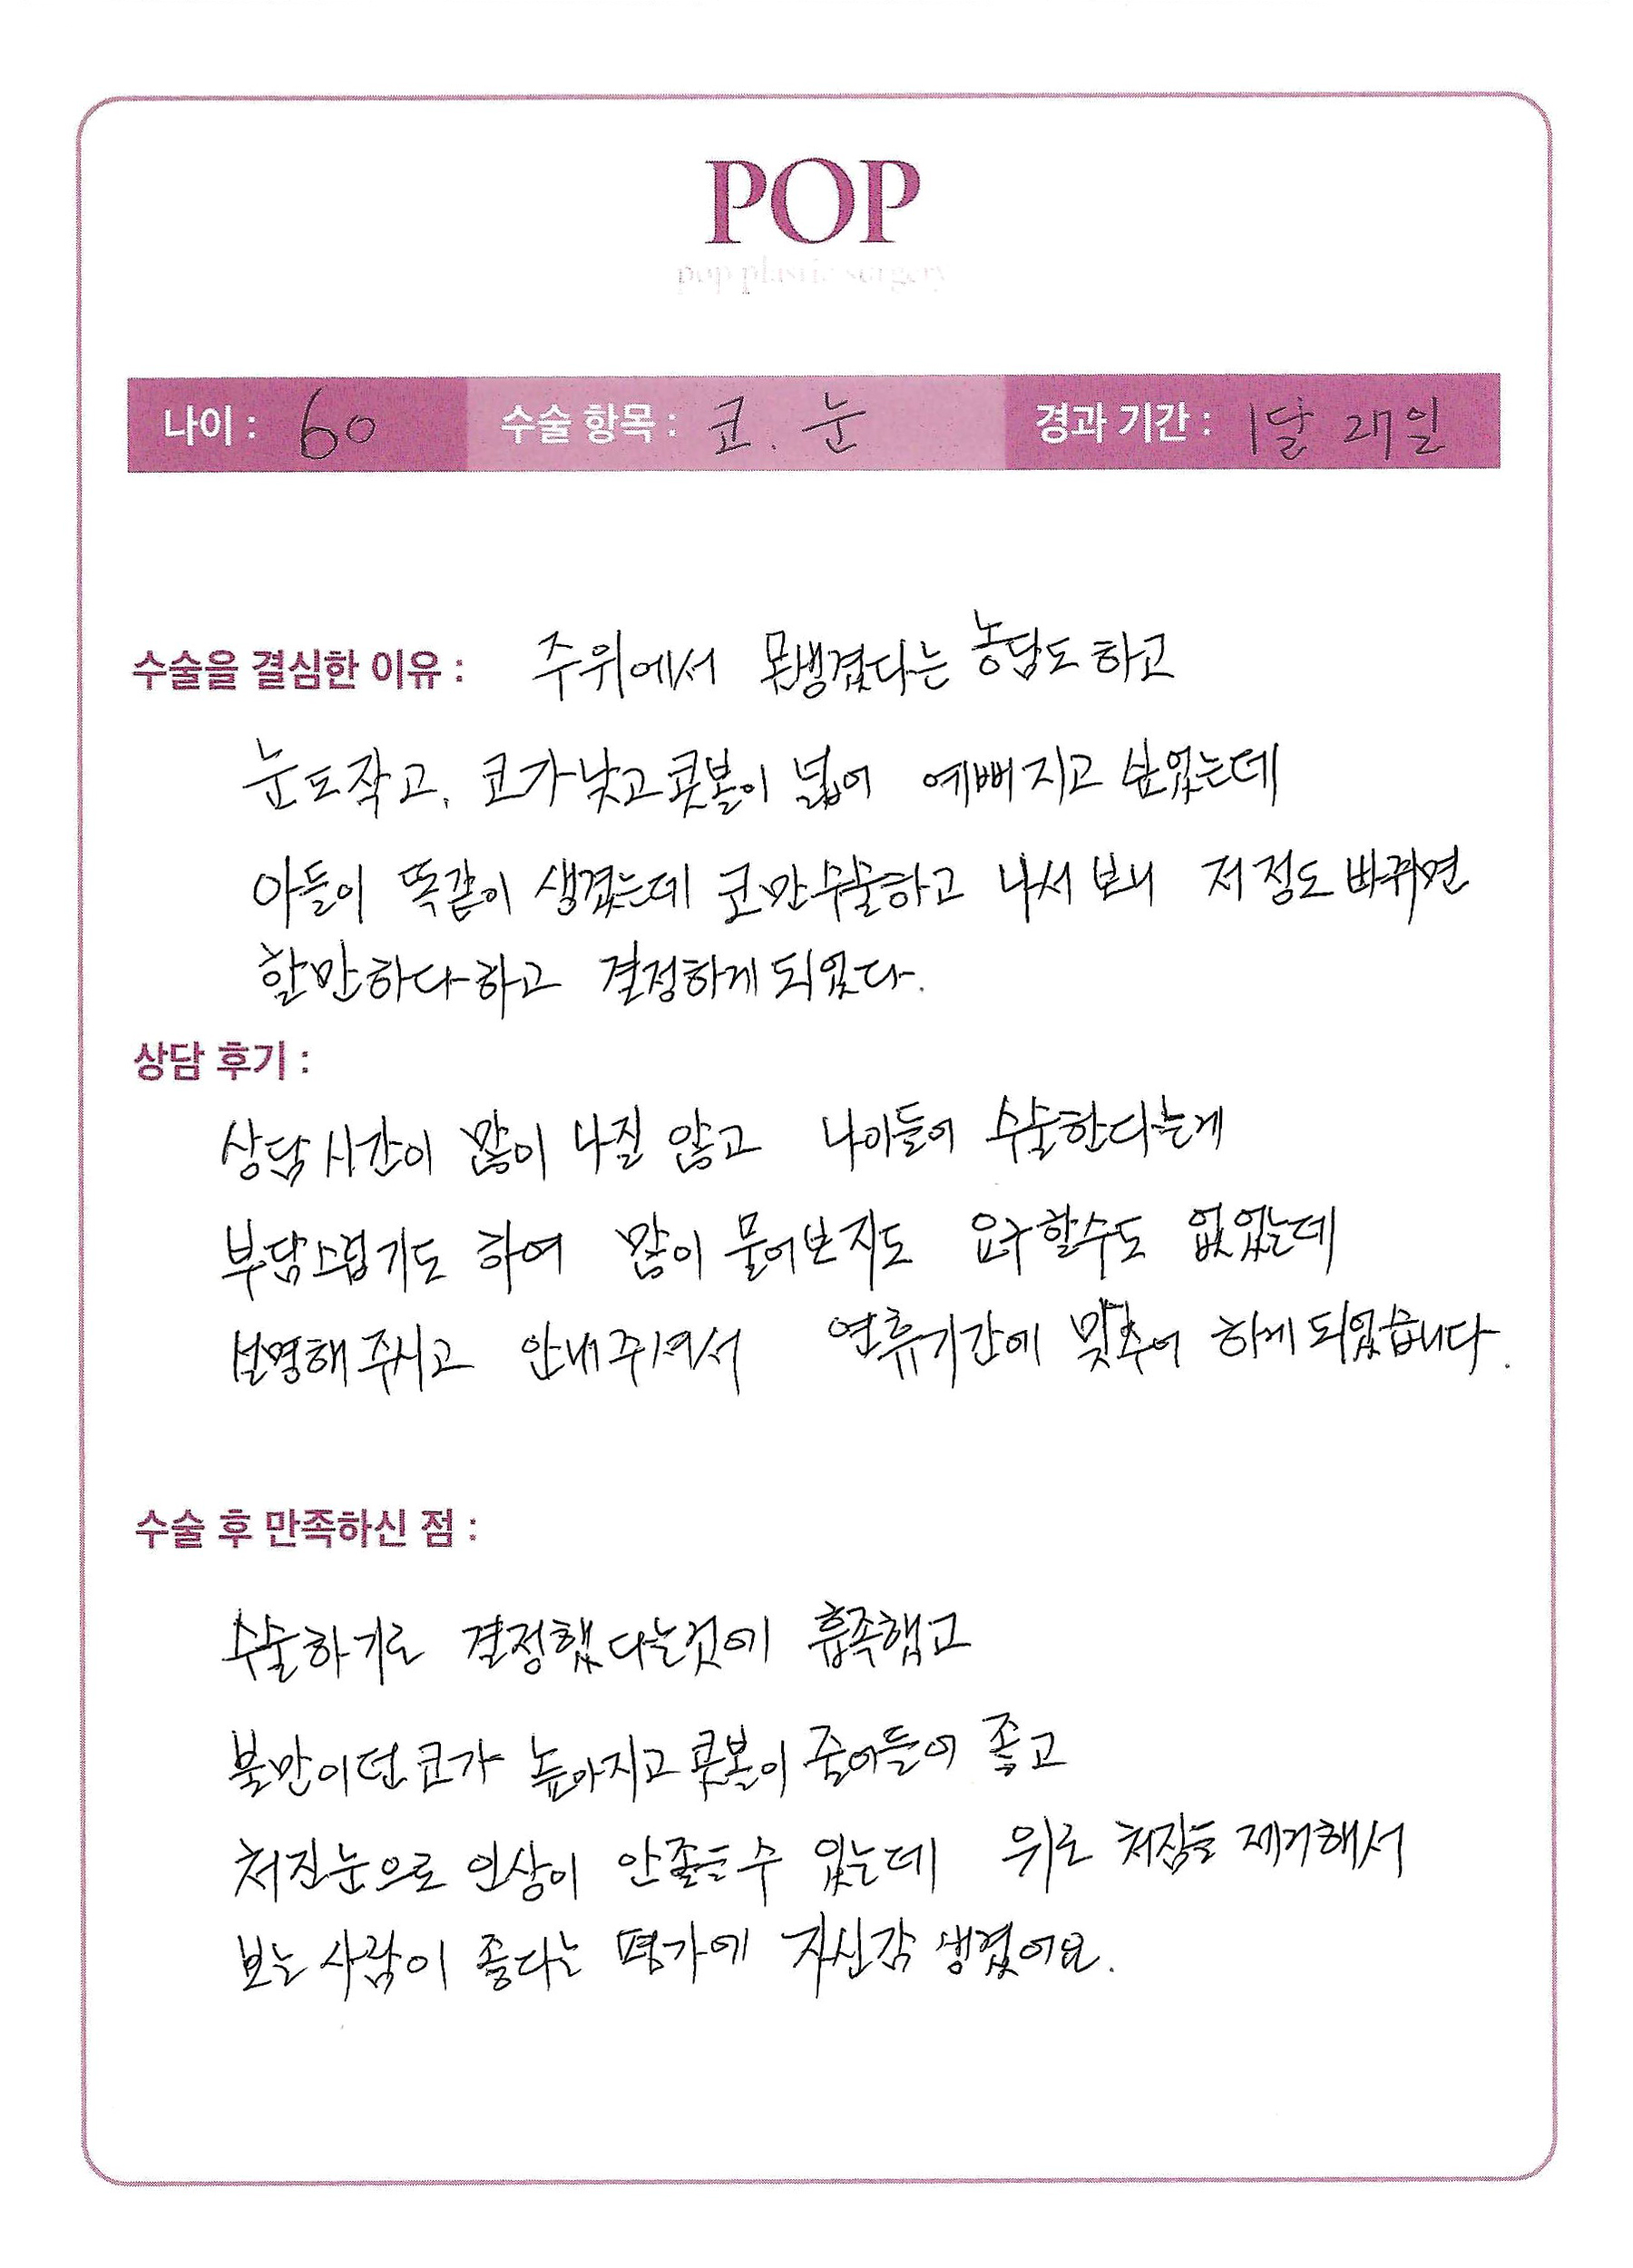 POP
pop plastic surgery
나이 : 60 수술 항목 : 코. 눈 경과 기간 : 1달 27일
수술을 결심한 이유 : 주위에서 못생겼다는 농담도 하고
눈도작고, 코가낮고 콧볼이 넓어 예뻐지고 싶었는데
아들이 똑같이 생겼는데 코만수술하고 나서 보니 저정도 바뀌면
할만하다하고 결정하게 되었다.
상담 후기 :
상담시간이 많이 나질 않고 나이들어 수술한다는게
부담스럽기도 하여 많이 물어보지도 요구할수도 없었는데
설명해 주시고 안내주셔서 연휴기간에 맞추어 하게 되었습니다.
수술 후 만족하신 점 :
수술하기로 결정했다는것에 흡족했고
불만이던 코가 높아지고 콧볼이 줄어들어 좋고
처진눈으로 인상이 안좋을수 있는데 위로 처짐을 제거해서
보는 사람이 좋다는 평가에 자신감 생겼어요.